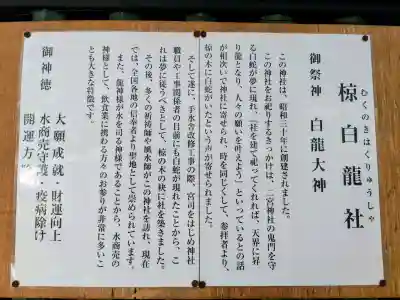 むくのきはくりゅうしゃ
椋白龍社
御祭神 白龍大神
この神社は、昭和三十年に創建されました。
この神社をお祀りするきっかけは、二宮神社の鬼門を守
る白蛇が夢に現れ、「社を建て祀ってくれれば、天界に昇
り龍となり、人々の願いを叶えよう」といっているとの話
が相次いで神社に寄せられ、時を同じくして、参拝者より、
椋の木に白蛇がいたという声が寄せられました。
そして遂に、手水舎改修工事の際、宮司をはじめ神社
職員や工事関係者の目前にも白蛇が現れたことから、こ
れは夢に従うべきとして、椋の木の袂に社を築きました。
その後、多くの祈祷師や風水師がこの神社を訪れ、現在
では、全国各地の信奉者より聖地として崇められています。
また、龍神様が水を司る神様であることから、水商売の
神様として、飲食業に携わる方々のお参りが非常に多いこ
とも大きな特徴です。
御神徳
大願成就・財運向上
水商売守護・疫病除け
開運方